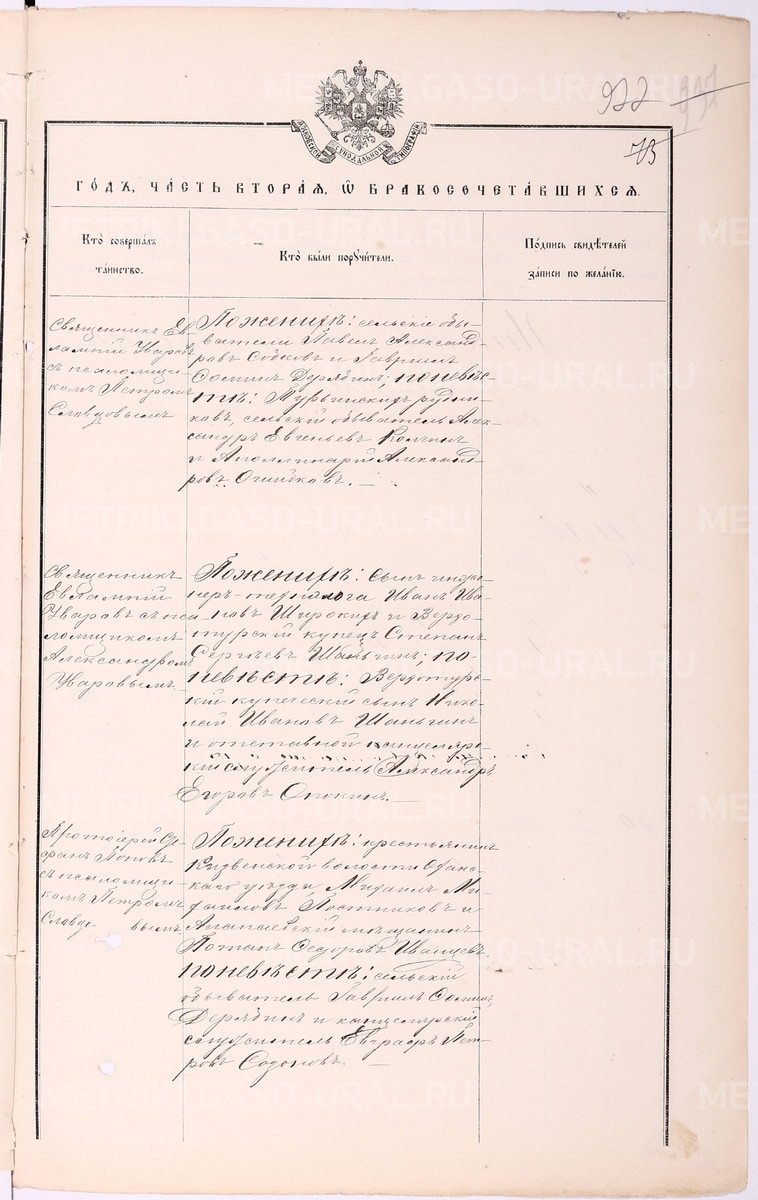 922 937
73
МОСКОВСКОЙ СѴНОДАЛЬНОЙ ТИПОГРАФІИ
ГО́ДЪ, ЧА́СТЬ ВТОРА́Я, Ѡ҆ БРАКОСОЧЕТА́ВШИХСЯ.
Кто̀ соверша́лъ
та́инство.
Кто̀ бы́ли порꙋчи́тели.
По́дпись свидѣ́телей
за́писи по жела́нію.
Священникъ Ев-
лампій Уваровъ
съ псаломщи-
комъ Петромъ
Словцовымъ
По женихѣ: сельскіе обы-
ватели Павелъ Александ-
ровъ Собковъ и Гавріилъ
Ѳоминъ Дерябинъ; по невѣс-
тѣ: Турьинскихъ рудни-
ковъ, сельскій обыватель Алек-
сандръ Евгеньевъ Колчинъ
и Аполлинарій Александ-
ровъ Ошибковъ.
Священникъ
Евлампій
Уваровъ съ пса-
ломщикомъ
Александромъ
Уваровымъ.
По женихѣ: сынъ инже-
неръ-технолога Иванъ Ива-
новъ Широкихъ и Верхо-
турскій купецъ Степанъ
Сергѣевъ Шаньгинъ; по
невѣстѣ: Верхотурс-
кій купеческій сынъ Нико-
лай Ивановъ Шаньгинъ
и отставной канцеляр-
скій служитель Александръ
Егоровъ Опокинъ.
Протоіерей Сте-
фанъ Поповъ
съ псаломщи-
комъ Петромъ
Словцовымъ
По женихѣ: крестьянинъ
волости Охан-
скаго уѣзда Михаилъ Ми-
хаиловъ Постниковъ и
Алапаевскій мѣщанинъ
Ѳедоровъ Иванцевъ
по невѣстѣ: сельскій
обыватель Гавріилъ Ѳоминъ
Дерябинъ и канцелярскій
служитель Евграфъ Пет-
ровъ Содоновъ.
METRIKI.GASO-URAL.RU